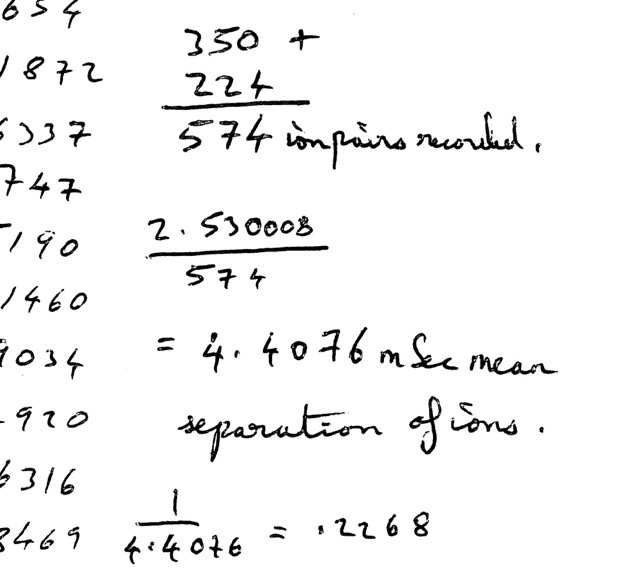 654
1872
6337
747
5190
1460
9034
920
6316
8469
350 +
224
574 ion pairs recorded.
2.530008
574
= 4.4076 mSec mean
separation of ions.
1
4.4076 = .2268